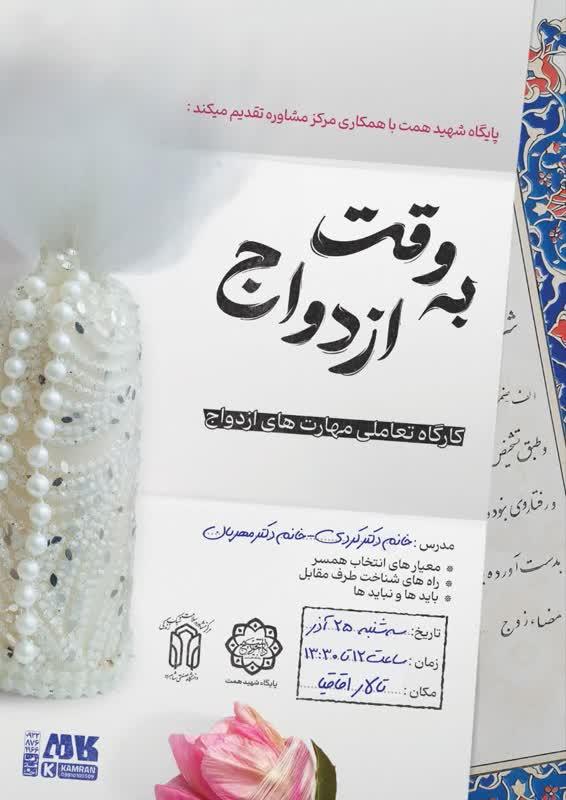 پایگاه شهید همت با همکاری مرکز مشاوره تقدیم میکند :
به وقت
ازدواج
کارگاه تعاملی مهارت های ازدواج
مدرس : خانم دکتر کردی - خانم دکتر مهربان
معیار های انتخاب همسر
راه های شناخت طرف مقابل
باید ها و نباید ها
تاریخ : سه شنبه ۲۵ آذر
زمان : ساعت ۱۲ تا ۱۳:۳۰
مکان : تالار اقاقیا
پایگاه شهید همت
و طبق تشخیص
بدست آورده
KAMRAN